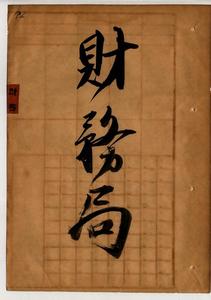 財務局